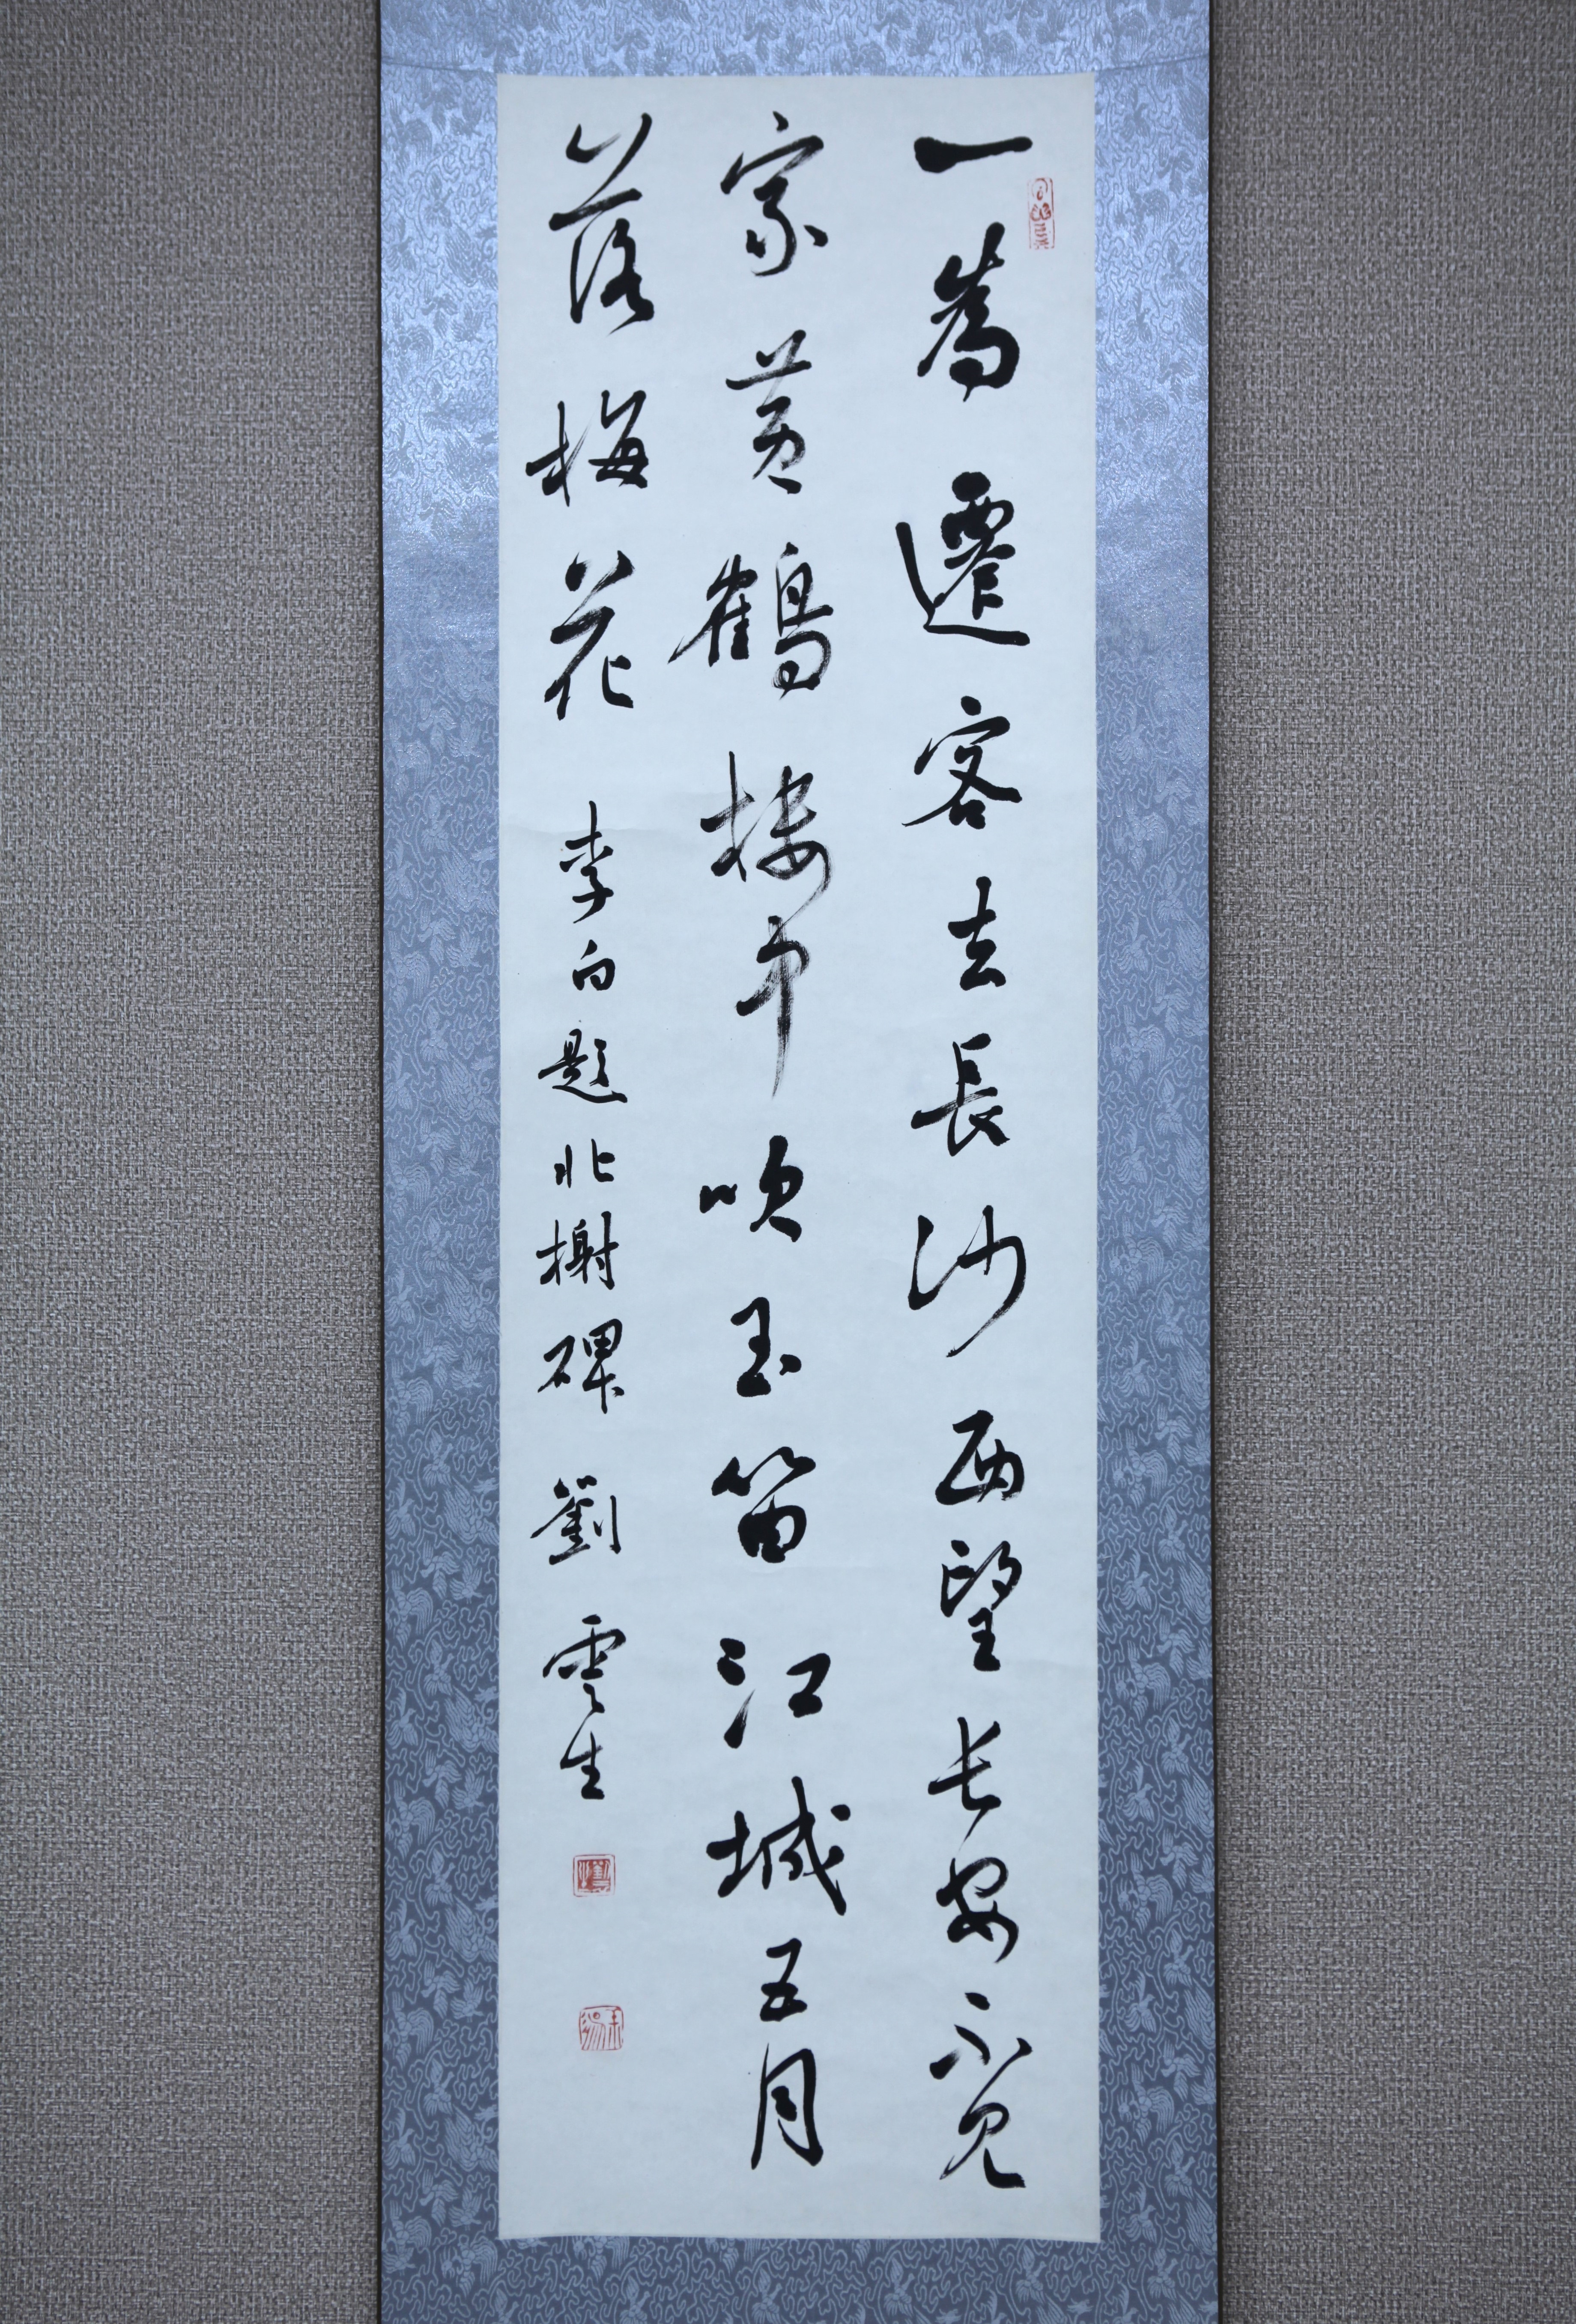 一為遷客去長沙西望长安不見
家黃鶴樓中吹玉笛江城五月
落梅花 李白題北榭碑 劉雲生